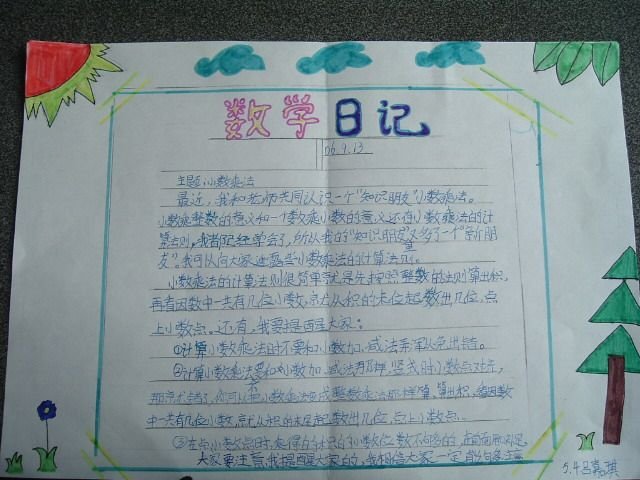 数学日记
06.9.13
主题:小数乘法
最近,我和老师共同认识一个"知识朋友"小数乘法。
小数乘整数的意义和一个数乘小数的意义还有小数乘法的计
算法则,我都已经学会了,所以我的"知识朋友"又多了一个"新朋
友"。我可以向大家述这些小数乘法的计算法则。
小数乘法的计算法则很简单就是先按照整数的法则算出积,
再看因数中一共有几位小数,就从积的末位起数出几位,点
上小数点。还有,我要提醒大家:
①计算小数乘法时不要和小数加、减法混淆以免出错。
②计算小数乘法要和小数加、减法那样,竖式时小数点对齐,
那就错了,你可以把小数乘法变成整数乘法那样算,算出积,看因数
中一共有几位小数,就从积的末尾起数出几位,点上小数点…
③在点小数点时,乘得的积的小数位数不够的,在前面用0补足
大家要注意我提醒大家的,我相信大家一定能
5.4吕嘉琪